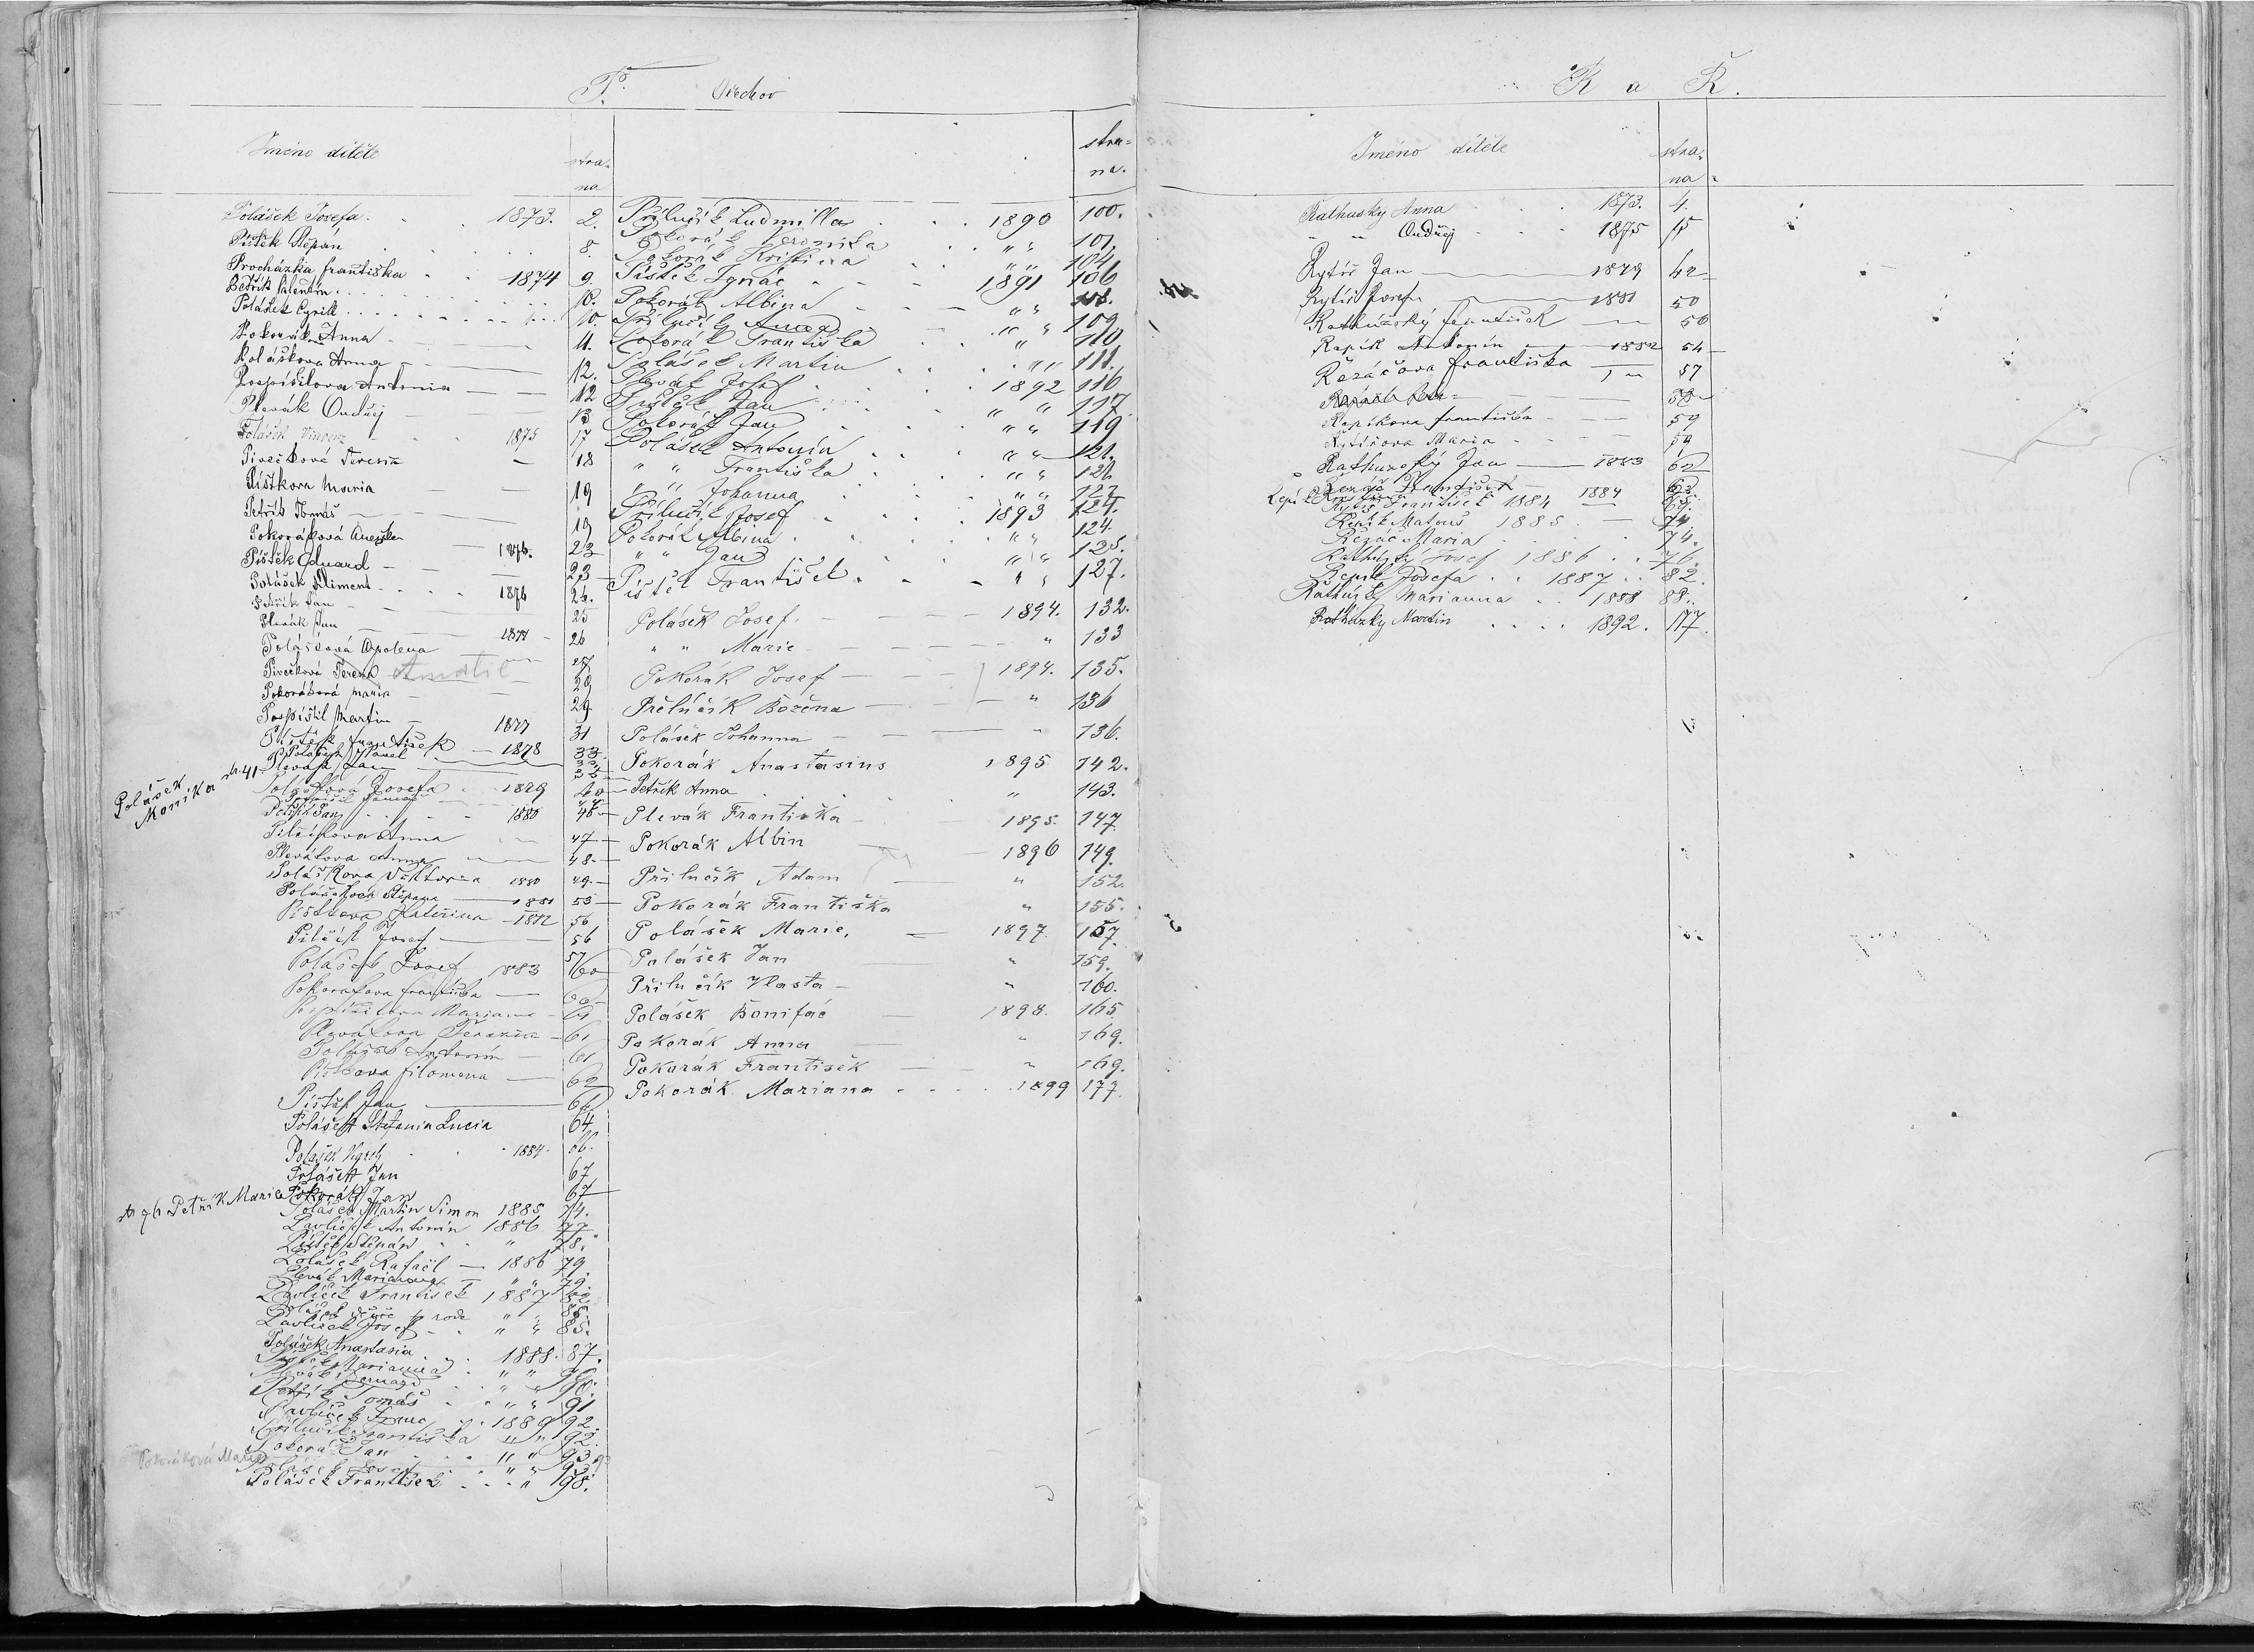 P. Ořechov
Jméno dítěte
stra-
na
Polášek Josefa. 1873. 2.
Pištěk Štěpán 8.
Procházka františka 1874 9.
Petřík Valentin 10.
Polášek Cyrill 10.
Pokoráková Anna 11.
Polášková Anna 12.
Pospíšilova Antonia 12
Plevák Ondřej 13
Polášek Vincenz 1875 17
Pivečková Teresia 18
Pištkova Maria 19
Petřík Tomáš 19
Pokoráková Anežka 1876. 23
Pištěk Eduard 23
Polášek Kliment 1876 24.
Petřík Jan 25
Plevák Jan 1877 26
Polášková Apolena 27
Pivečková Terezie 29
Pokoráková Maria 29.
Pospíšil Martin 1877 31
Pištěk František 1878 33
Polášek Pavel
Plevák Jan
Polášek Monika str. 41
Polášková Josefa 1879 40
Petřík Jan 1880 46
Anna 47
Plevákova Anna 48
Poláškova Viktoria 1880 49
Poláškova Štěpana 1881 53
Pištkova Kateřina 1882 56
Josef 56
57
Polášek Josef 1883 60
Pokorakova františka 60
Pospíšilova Mariana 61
Plevákova Terezie 61
Polášek Antonín 61
Pištkova filomena 62
Pištěk Jan 62
Polášek Stefania Lucia 64
Polášek 1884. 66.
Polášek Jan 67
Pokorák Jan 67
str 76 Petřík Marie
Polášek Martin Simon 1885 74.
Pavlíček Antonín 1886 77
Pištěk Štěpán " 78.
Polášek Rafael 1886 79.
Plevák Marianna " " 79.
Pavlíček František 1887 82
Polášek
Pavlíček Josef " " 85.
Polášek Anastasia 1888. 87.
Pištěk Marianna " " 90
Plevák Bernard " " 90.
Petřík Tomáš " " 91
Pavlíček Franc 1889 92.
Přilučík Františka " " 92.
Pokorák Jan " " 93
Pokoráková Marie
Polášek Josef " " 93
Polášek František " 98.
stra-
na.
Přilučík Ludmilla 1890 100.
Pokorák Veronika " " 101.
Pokorák Kristina " " 104
Pištěk Ignác 1891 106
Pokorák Albina " "
Přilučík Anna " " 109
Pokorák Františka " 110
Polášek Martin " " 111.
Plevák Josef 1892 116
Pištěk Jan " " 117
Pokorák Jan " " 119
Polášek Antonia " " 121.
" " Františka " " 121.
" " Johanna " " 122
Přilučík Josef 1893 124.
Pokorák Albina " " 124.
" " Jan " " 125.
Pištěk František " " 127.
Polášek Josef. 1894. 132.
" " Marie " 133
Pokorák Josef 1894. 135.
Přilučík Božena " 136
Polášek Johanna " 136.
Pokorák Anastasius 1895 142.
Petřík Anna " 143.
Plevák Františka 1895. 147
Pokorák Albin 1896 149.
Přilučík Adam " 152.
Pokorák Františka " 155.
Polášek Marie, 1897. 157.
Polášek Jan " 159.
Přilučík Vlasta " 160.
Polášek Bonifác 1898. 165
Pokorák Anna " 169.
Pokorák František " 169.
Pokorák Mariana 1899 177.
R a Ř.
Jméno dítěte
stra-
na
Rathusky Anna 1873. 4.
" " Ondřej 1875 15
Rytíř Jan 1879 42
Rytíř Josef 1881 50
Rathúzský František 50
Řepík Antonín 1882 54
Řezáčova františka 57
58
Řepíkova františka 59
Rytířova Maria 59
Rathuzský Jan 1883 62
Řezáč František 1884 63.
Rytíř František 1884
Řepík Matouš 1885 74.
Řezáč Maria 74.
Rathuzký Josef 1886 76.
Řepík Josefa 1887 82.
Rathúzky Marianna 1888 88.
Rathúzky Martin 1892. 117.